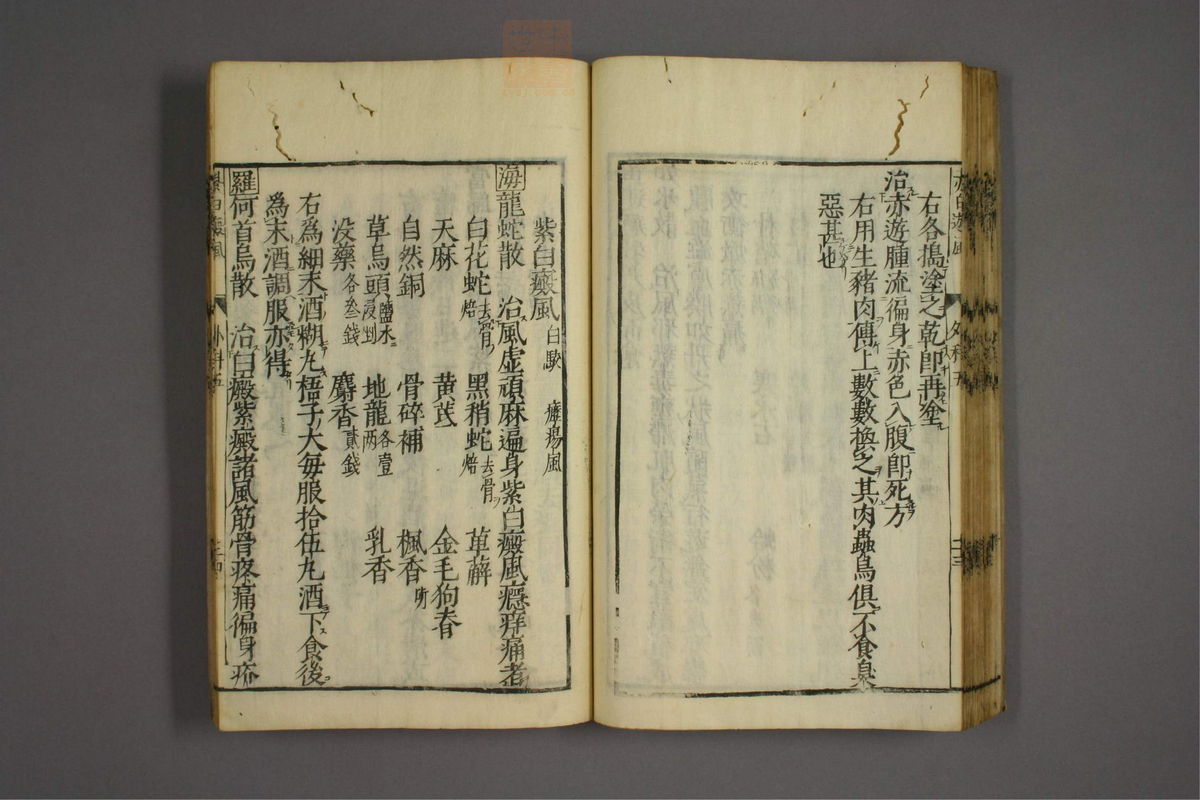 右各搗塗之乾卽再塗
治赤遊腫流徧身赤色入腹卽死方
右用生豬肉傅上數數換之其肉蟲鳥俱不食臭
惡甚也
紫白癜風 白駁 癧瘍風
海龍蛇散 治風虛頑麻遍身紫白癜風癮痒痛者
白花蛇 去骨焙 黑稍蛇 去骨焙 萆薢
天麻 黄芪 金毛狗脊
自然銅 骨碎補 楓香 研
草烏頭 鹽水浸剉 地龍 各壹两 乳香
没藥 各叁錢 麝香 貳錢
右爲細末酒糊丸梧子大每服拾伍丸酒下食後
爲末酒調服亦得
羅何首烏散 治白癜紫癜諸風筋骨疼痛徧身疥